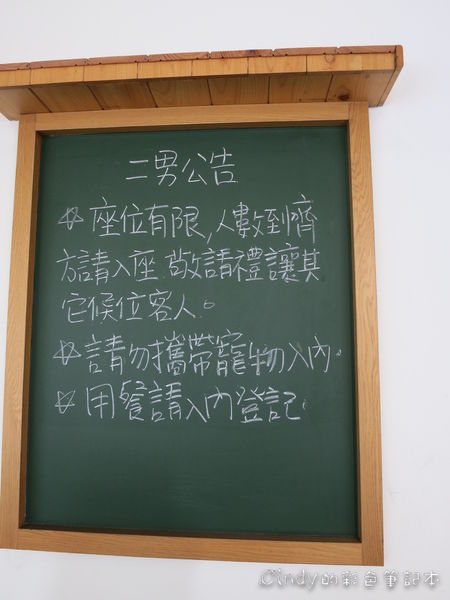 二男公告
☆座位有限,人數到齊
方請入座.敬請禮讓其
它候位客人。
☆請勿攜帶寵物入內。
☆用餐請入內登記.
Cindy的彩色筆記本